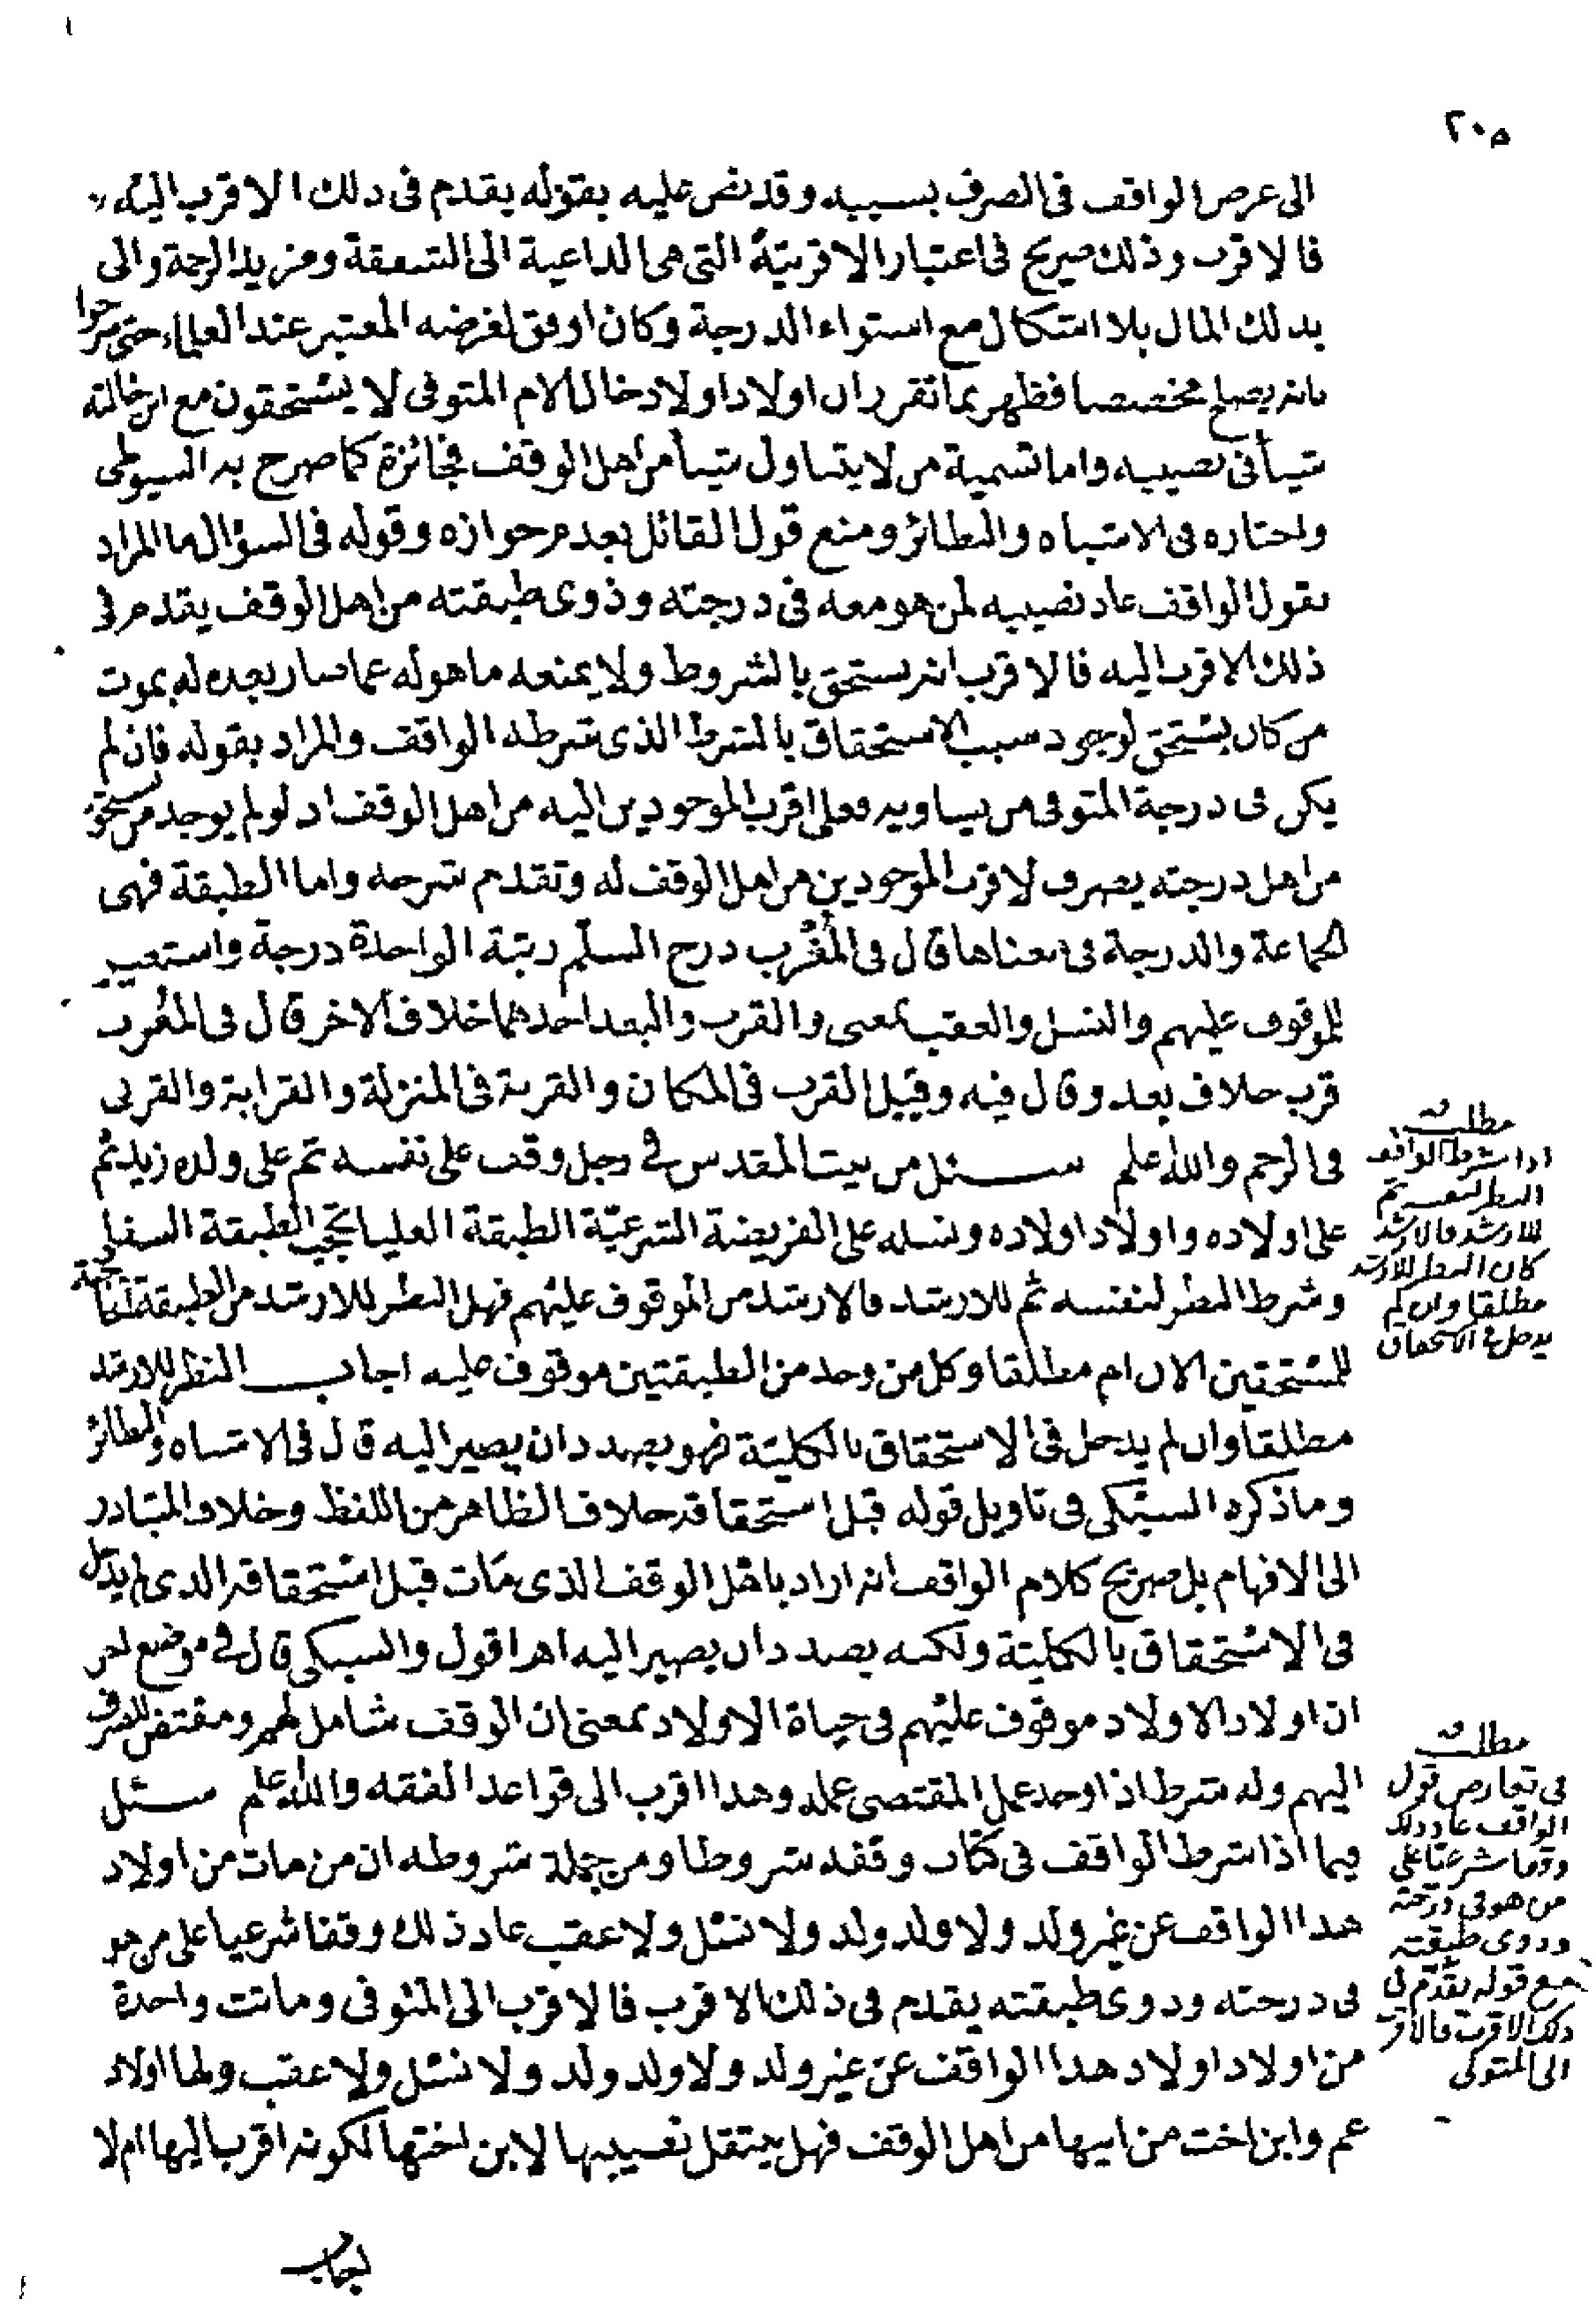 ٢٠٥
الى غرض الواقف فى الصرف بسببه وقد نص عليه بقوله يقدم فى ذلك الاقرب اليه
فالاقرب وذلك صريح فى اعتبار الاقربية التى هى الداعية الى الشفقة ومزيد الرحمة والى
بذلك المال بلا اشكال مع استواء الدرجة وكان اوفق لغرضه المعتبر عند العلماء حتى صرحوا
بانه يصلح مخصصا فظهر بما تقرر ان اولاد اولاد خال الام المتوفى لا يستحقون مع ابن خالته
شيأ فى نصيبه واما تسمية من لا يتناول شيأ من اهل الوقف فجائزة كما صرح به السيوطى
واختاره فى الاشباه والنظائر ومنع قول القائل بعدم جوازه وقوله فى السؤال ما المراد
بقول الواقف عاد نصيبه لمن هو معه فى درجته وذوى طبقته من اهل الوقف يقدم فى
ذلك الاقرب اليه فالاقرب انه يستحق بالشروط ولا يمنعه ما هو له عما صار بعده له بموت
من كان يستحق لوجود سبب الاستحقاق بالشرط الذى شرطه الواقف والمراد بقوله فان لم
يكن فى درجة المتوفى من يساويه فعلى اقرب الموجودين اليه من اهل الوقف اذ لو لم يوجد من يستحق
من اهل درجته يصرف لاقرب الموجودين من اهل الوقف له وتقدم شرحه واما الطبقة فهى
الجماعة والدرجة فى معناها قال فى المغرب درج السلم رتبة الواحدة درجة واستعير
للموقوف عليهم والنسل والعقب بمعنى والقرب والبعد احدهما خلاف الاخر قال فى المغرب
قرب خلاف بعد وقال فيه وقيل القرب فى المكان والقربة فى المنزلة والقرابة والقربى
فى الرحم والله اعلم سئل من بيت المقدس فى رجل وقف على نفسه ثم على ولده زيد ثم
على اولاده واولاد اولاده ونسله على الفريضة الشرعية الطبقة العليا تحجب الطبقة السفلى
وشرط النظر لنفسه ثم للارشد فالارشد من الموقوف عليهم فهل النظر للارشد من الطبقة
للمستحقين الان ام مطلقا وكل من وجد من الطبقتين موقوف عليه اجاب النظر للارشد
مطلقا وان لم يدخل فى الاستحقاق بالكلية فهو بصدد ان يصير اليه قال فى الاشباه والنظائر
وما ذكره السبكى فى تاويل قوله قبل استحقاقه خلاف الظاهر من اللفظ وخلاف المتبادر
الى الافهام بل صريح كلام الواقف انه اراد باهل الوقف الذى مات قبل استحقاقه الذى لم يدخل
فى الاستحقاق بالكلية ولكنه بصدد ان يصير اليه اهـ اقول والسبكى قال فى موضع اخر
ان اولاد الاولاد موقوف عليهم فى حياة الاولاد بمعنى ان الوقف شامل لهم ومقتض للصرف
اليهم وله شرط اذا وجد عمل المقتضى عمله وهذا اقرب الى قواعد الفقه والله اعلم سئل
فيما اذا شرط الواقف فى كتاب وقفه شروطا ومن جملة شروطه ان من مات من اولاد
هذا الواقف عن غير ولد ولا ولد ولد ولا نسل ولا عقب عاد ذلك وقفا شرعيا على من هو
فى درجته وذوى طبقته يقدم فى ذلك الاقرب فالاقرب الى المتوفى وماتت واحدة
من اولاد اولاد هذا الواقف عن غير ولد ولا ولد ولد ولا نسل ولا عقب ولها اولاد
عم وابن اخت من ابيها من اهل الوقف فهل ينتقل نصيبها لابن اختها لكونه اقرب اليها ام لا
اجاب
مطلب
اذا شرط الواقف
النظر لنفسه ثم
للارشد فالارشد
كان النظر للارشد
مطلقا وان لم
يدخل فى الاستحقاق
مطلب
فى تعارض قول
الواقف عاد ذلك
وقفا شرعيا على
من هو فى درجته
وذوى طبقته
مع قوله يقدم فى
ذلك الاقرب فالاقرب
الى المتوفى